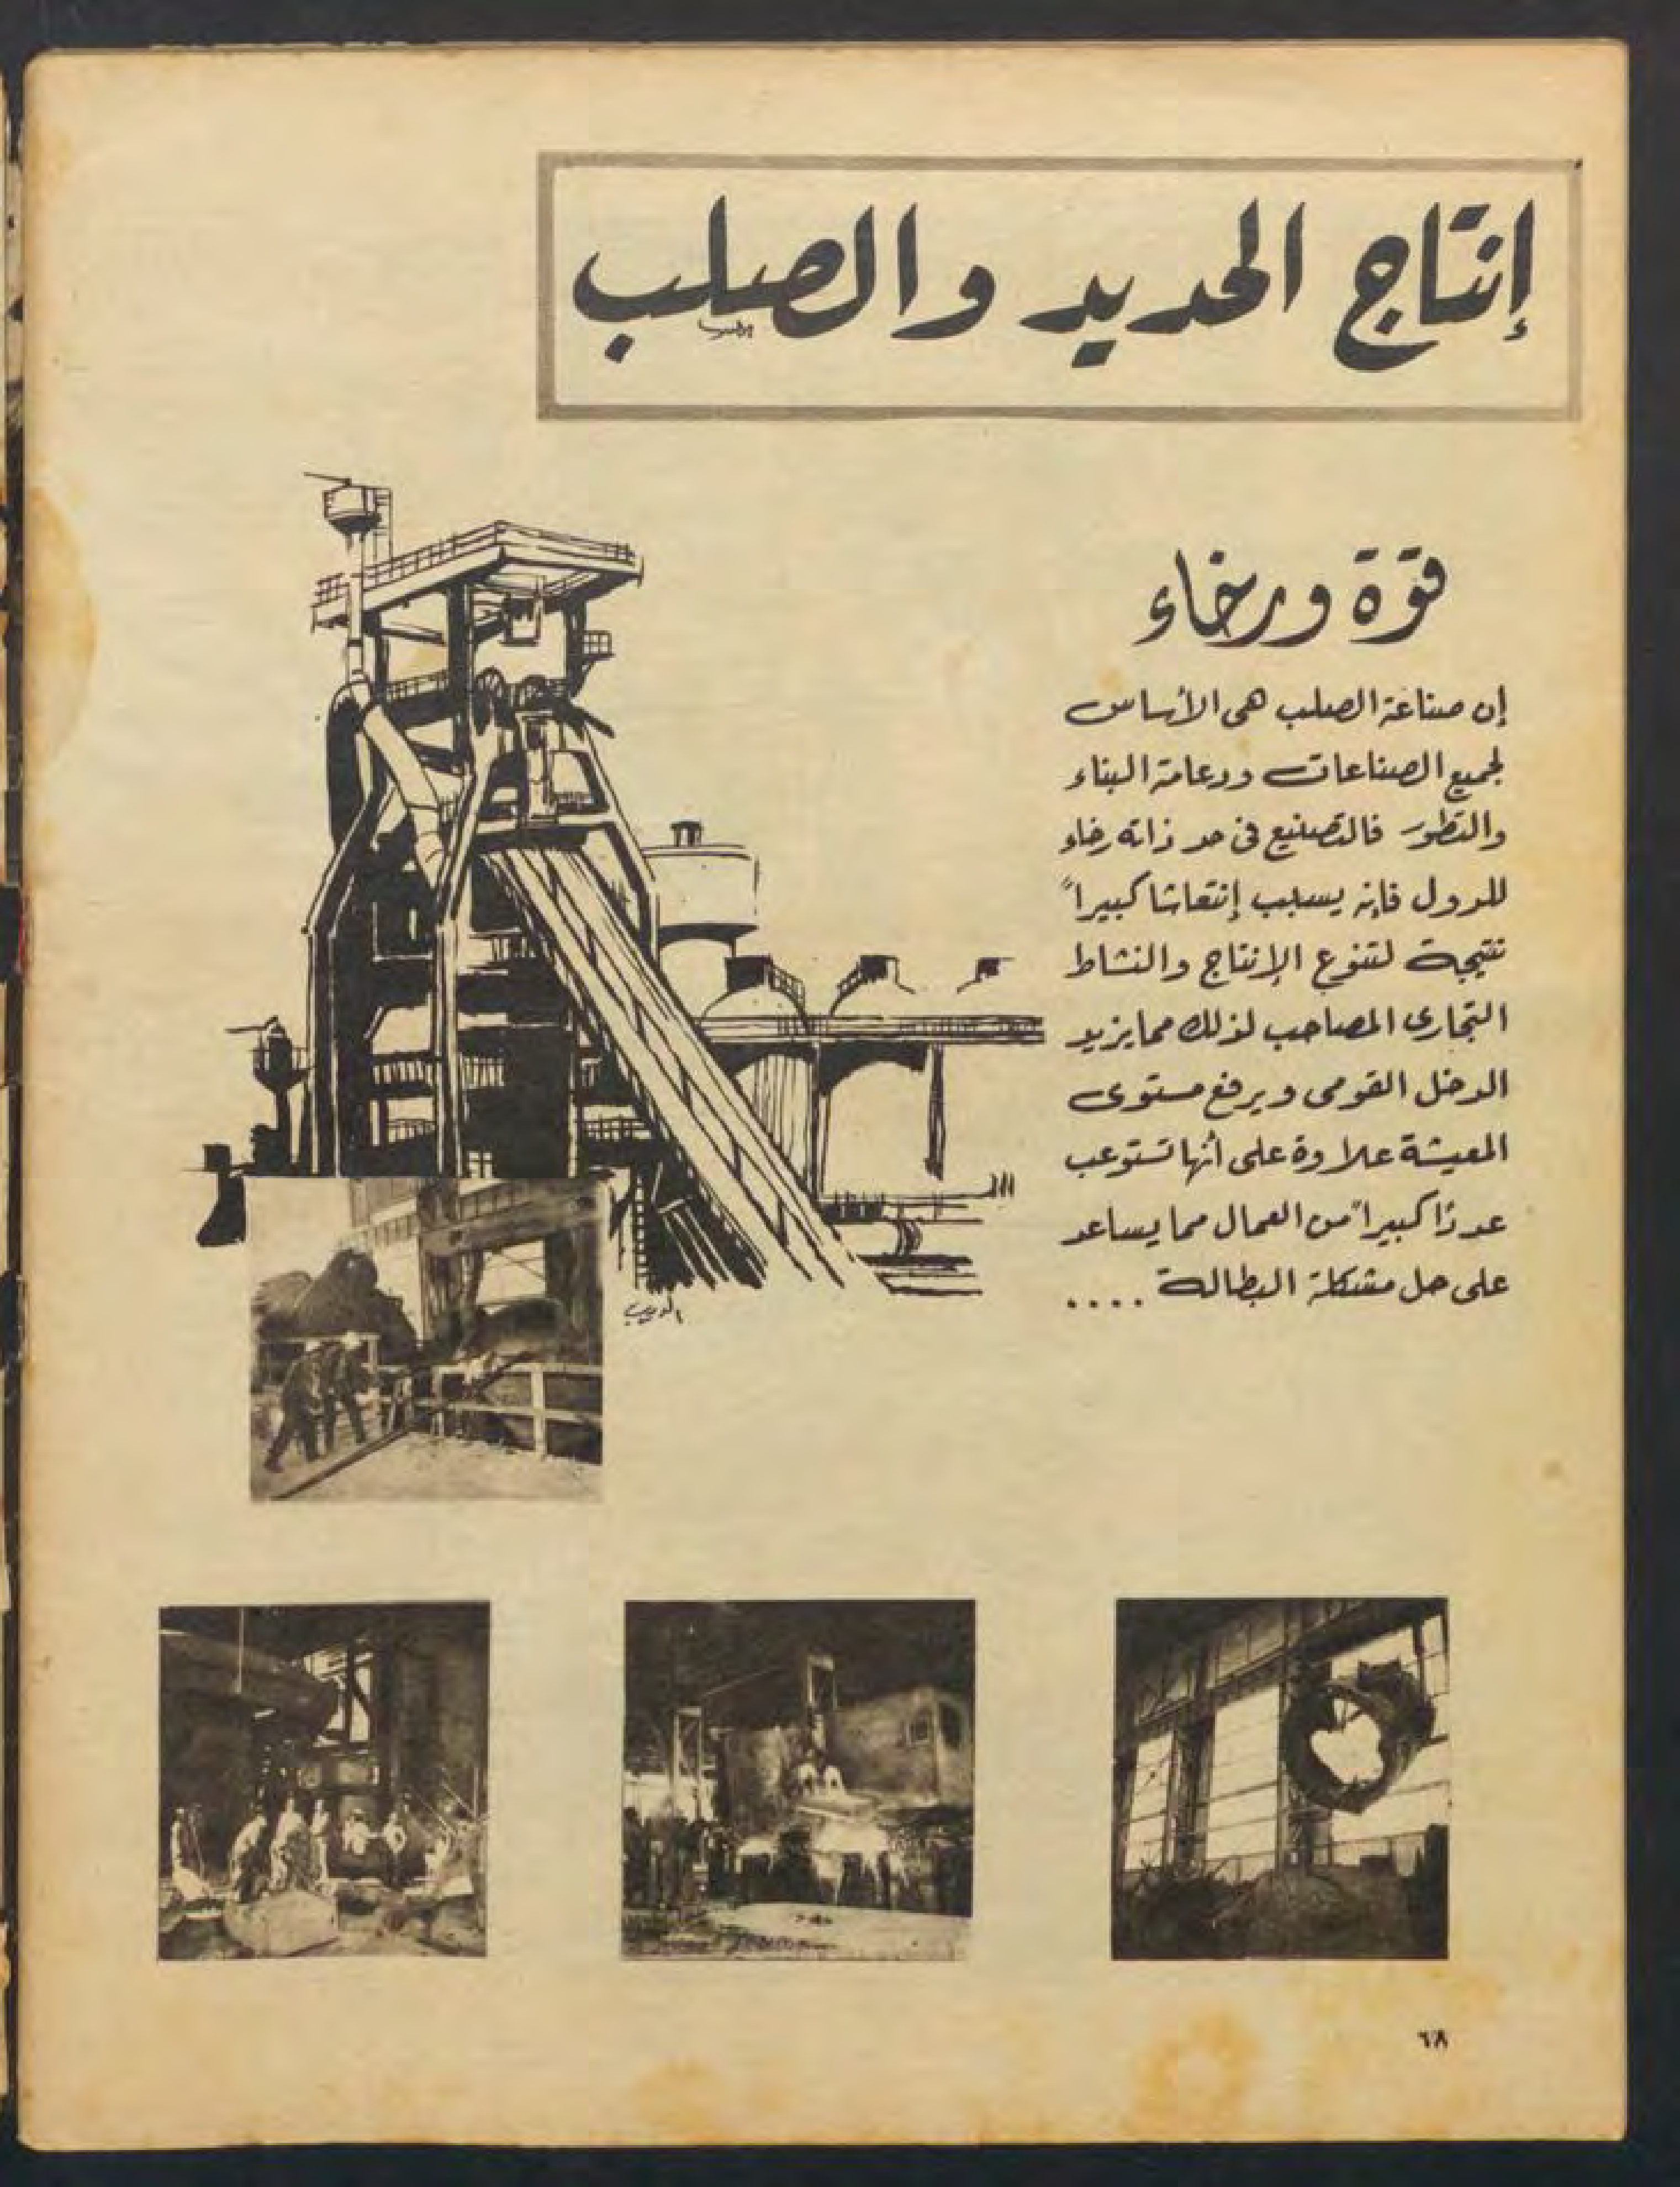 إنتاج الحديد والصلب
قوة ورخاء
إن صناعة الصلب هى الأساس
لجميع الصناعات ودعامة البناء
والتطور فالتصنيع فى حد ذاته رخاء
للدول فإنه يسبب إنتعاشا كبيراً
نتيجة لتنوع الإنتاج والنشاط
التجارى المصاحب لذلك مما يزيد
الدخل القومى ويرفع مستوى
المعيشة علاوة على أنها تستوعب
عددًا كبيراً من العمال مما يساعد
على حل مشكلة البطالة ....
٦٨